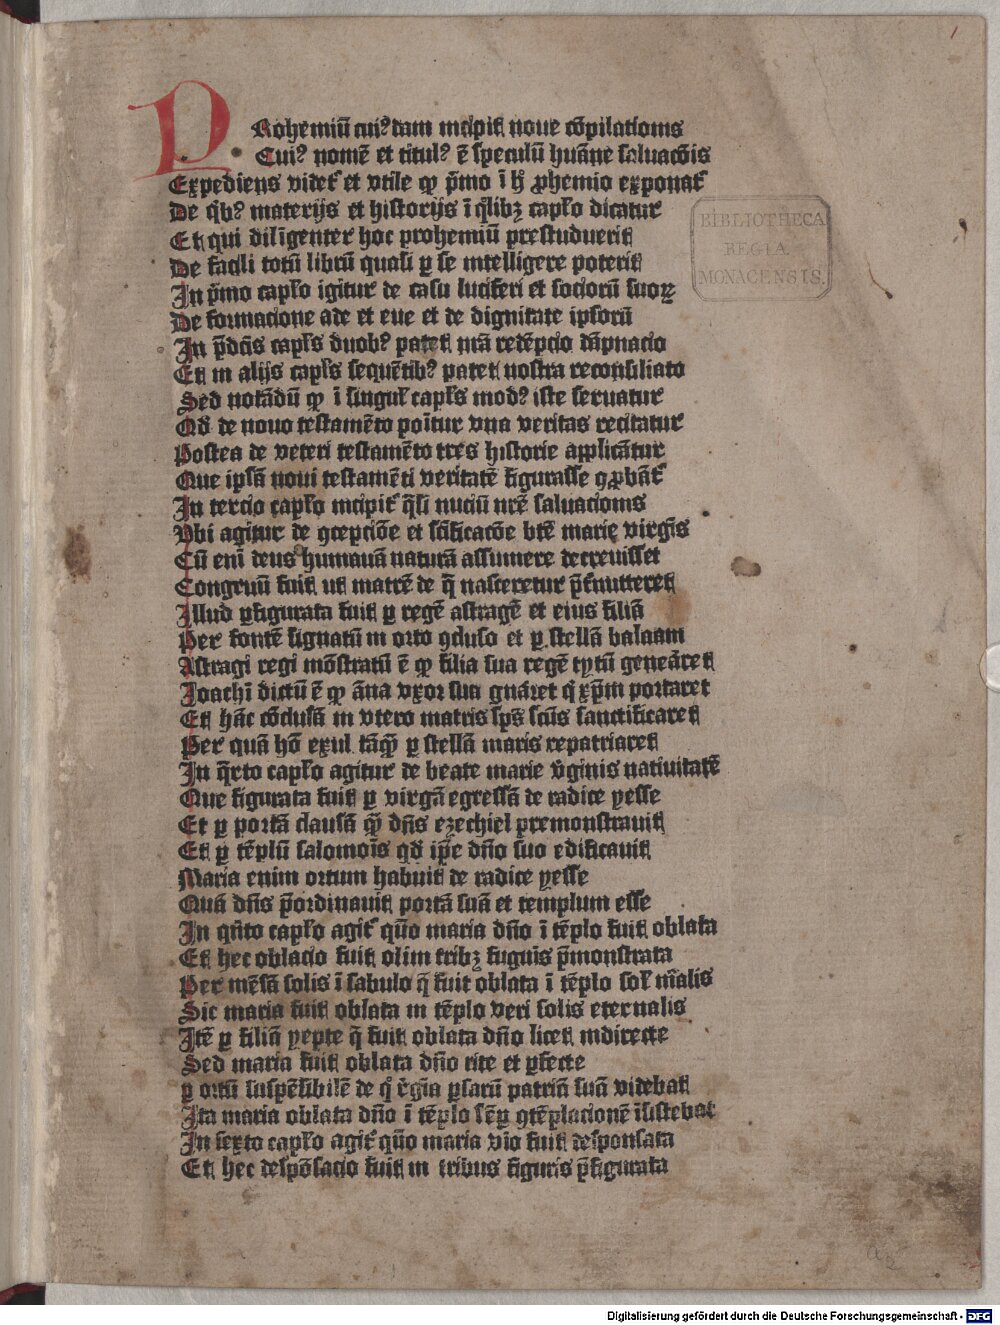 PRohemiū cuiꝰdam incipit noue cōpilationis
Cuiꝰ nomē et titulꝰ ē speculū huāne saluacōis
Expediens videt᷑ et vtile ꝙ p̄mo ī h̄ ꝓhemio exponat᷑
De qͥbꝰ materijs et historijs ī q̄libꝫ capl̄o dicatur
Et qui diligenter hoc prohemiū prestuduerit
De facili totū librū quasi ꝑ se intelligere poterit
In p̄mo capl̄o igitur de casu luciferi et socioꝛū suoꝝ
De formacione ade et eue et de dignitate ipsorū
In p̄dcīs capl̄s duobꝰ patet nrā redēpcio dāpnacio
Et in alijs capl̄s sequētibꝰ patet nostra reconsiliatio
Sed notādū ꝙ ī singul̄ capl̄s modꝰ iste seruatur
Qd̄ de nouo testamēto poītur vna veritas recitatur
Postea de veteri testamēto tres historie applicātur
Que ipsā noui testamēti veritatē figurasse ꝯꝓbāt᷑
In tercio capl̄o incipit᷑ q̄si nuciū nrē saluacionis
Vbi agitur de ꝯcepciōe et scīficacōe btē marię virgīs
Cū enī deus humanā naturā assumere decreuisset
Congruū fuit ut matrē de q̄ nasceretur p̄mitteret
Illud ꝑfigurata fuit ꝑ regē astragē et eius filiā
Per fontē signatū in orto ꝯcluso et ꝑ stellā balaam
Astragi regi mōstratū ē ꝙ filia sua regē tytū geneāret
Joachī dictū ē ꝙ āna vxor sua gn̄aret q̄ xp̄m portaret
Et hāc cōclusā in vtero matris sp̄s scūs sanctificaret
Per quā hō exul tāꝙ̄ ꝑ stellā maris repatriaret
In q̄rto capl̄o agitur de beate marie v̄ginis natiuitatē
Que figurata fuit ꝑ virgā egressā de radice yesse
Et ꝑ portā clausā ꝙ̄ dn̄s ezechiel premonstrauit
Et ꝑ tēplū salomoīs qd̄ ip̄e dn̄o suo edificauit
Maria enim ortum habuit de radice yesse
Quā dn̄s p̄ordinauit portā suā et templum esse
In qn̄to capl̄o agit᷑ quō maria dn̄o ī tēplo fuit oblata
Et hec oblacio fuit olim tribꝫ fuguīs p̄monstrata
Per mēsā solis ī sabulo q̄ fuit oblata ī tēplo sol̄ mālis
Sic maria fuit oblata in tēplo veri solis eternalis
Itē ꝑ filiā yepte q̄ fuit oblata dn̄o licet indirecte
Sed maria fuit oblata dn̄o rite et ꝑfecte
ꝑ ortū suspēsibilē de qͦ rēgīa ꝑsarū patriā suā videbat
Ita maria oblata dn̄o ī tēplo sēꝑ ꝯtēplacionē īsistebat
In sexto capl̄o agit᷑ quō maria vīo fuit desponsata
Et hec despōsacio fuit in tribus figuris p̄figurata
BIBLIOTHECA
REGIA
MONACENSIS.
Digitalisierung gefördert durch die Deutsche Forschungsgemeinschaft - DFG